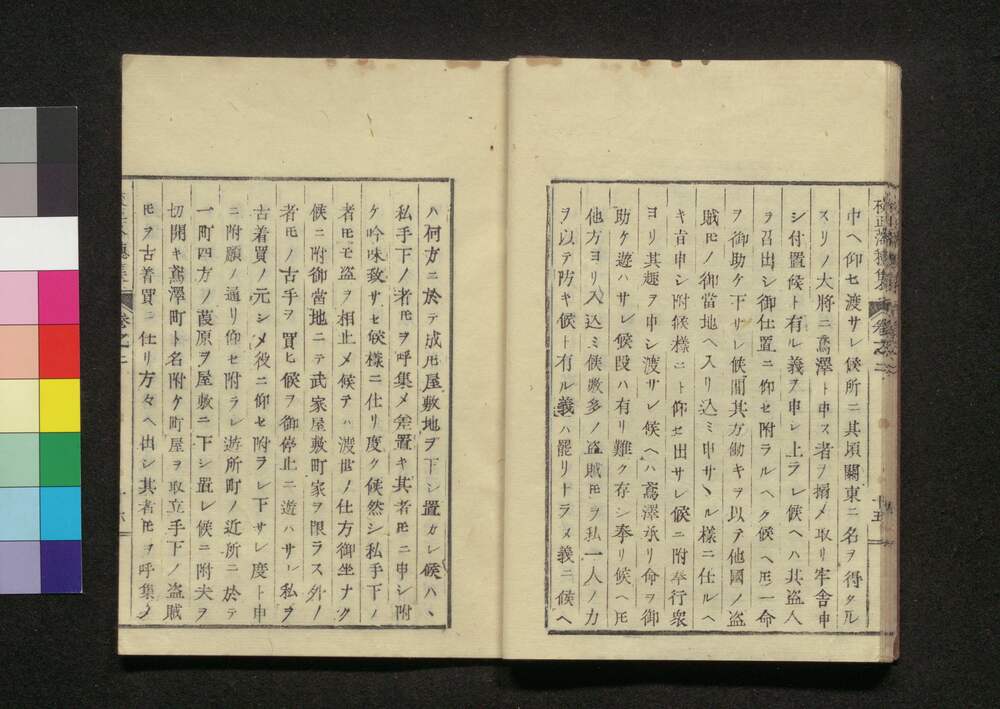 中ヘ仰セ渡サレ候所ニ其頃關東ニ名ヲ得タル
スリノ大將ニ鳶澤ト申ス者ヲ搦メ取リ牢舎申
シ付置候ト有ル義ヲ申シ上ラレ候ヘハ其盗人
ヲ召出シ御仕置ニ仰セ附ラルヘク候ヘ𪜈一命
ヲ御助ケ下サレ候間其方働キヲ以テ他國ノ盗
賊𪜈ノ御當地ヘ入リ込ミ申サヽル様ニ仕ルヘ
キ旨申シ附候様ニト仰セ出サレ候ニ附奉行衆
ヨリ其趣ヲ申シ渡サレ候ヘハ鳶澤承リ命ヲ御
助ケ遊ハサレ候段ハ有リ難ク存シ奉リ候ヘ𪜈
他方ヨリ入込ミ候數多ノ盗賊𪜈ヲ私一人ノ力
ヲ以テ防キ候ト有ル義ハ罷リナラヌ義ニ候ヘ
ハ何方ニ於テ成𪜈屋敷地ヲ下シ置カレ候ハヽ
私手下ノ者𪜈ヲ呼集メ差置キ其者𪜈ニ申シ附
ケ吟味致サセ候様ニ仕リ度ク候然シ私手下ノ
者𪜈モ盗ヲ相止メ候テハ渡世ノ仕方御坐ナク
候ニ附御當地ニテ武家屋敷町家ヲ限ラス外ノ
者𪜈ノ古手ヲ買ヒ候ヲ御停止ニ遊ハサレ私ヲ
古着買ノ元シメ役ニ仰セ附ラレ下サレ度ト申
ニ附願ノ通リ仰セ附ラレ遊所町ノ近所ニ於テ
一町四方ノ葭原ヲ屋敷ニ下シ置レ候ニ附夫ヲ
切開キ鳶澤町ト名附ケ町屋ヲ取立手下ノ盗賊
𪜈ヲ古着買ニ仕リ方々ヘ出シ其者𪜈ヲ呼集メ